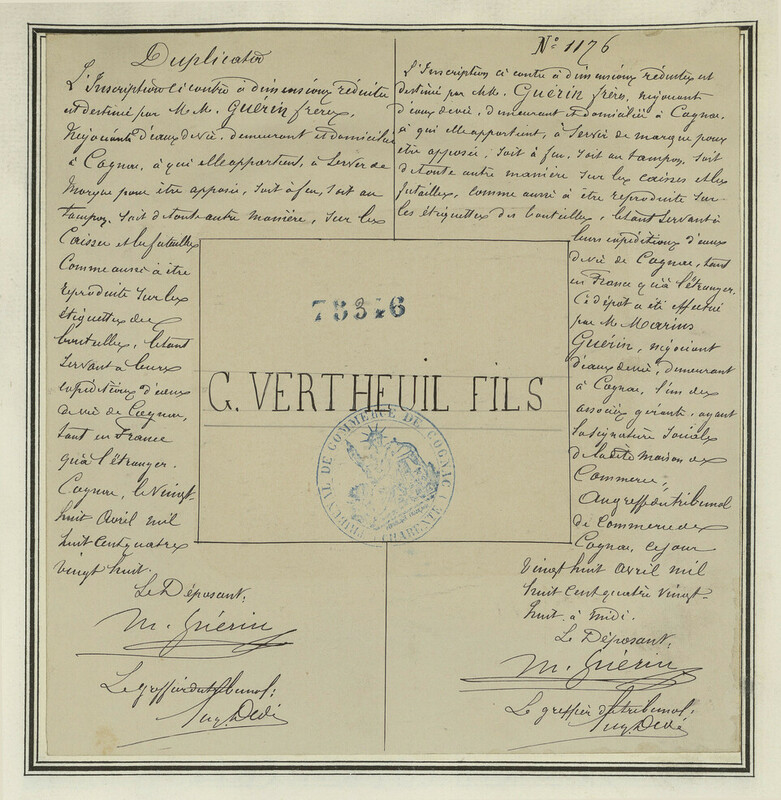 Duplicata
L'Inscription ci contre à dimensions réduites
est destiné par M M. Guérin frères,
Négociants d'eaux de vie, demeurant et domiciliés
à Cognac, à qui elle appartient, à Servir de
Marque pour être apposée, soit à feu, soit au
tampon, soit de toute autre manière, sur les
Caisses et les futailles
Comme aussi à être
reproduite sur les
étiquettes des
bouteilles, le tout
servant à leurs
expéditions d'eaux
de vie de Cognac,
tant en France
qu'à l'étranger.
Cognac, le Vingt
huit Avril mil
huit cent quatre
vingt huit.
Le Déposant,
M. Guérin
Le greffier du tribunal:
N° 1176
L'Inscription ci contre à dimensions réduites est
destiné par MM. Guérin frères, négociants
d'eaux de vie, demeurant et domiciliés à Cognac,
à qui elle appartient, à Servir de marque pour
être apposée, soit à feu, soit au tampon, soit
de toute autre manière sur les caisses et les
futailles, comme aussi à être reproduite sur
les étiquettes des bouteilles, le tout servant à
leurs expéditions d'eaux
de vie de Cognac, tant
en France qu'à l'étranger.
Ce dépôt a été effectué
par M. Marius
Guérin, négociant
d'eaux de vie, demeurant
à Cognac, l'un des
associés gérants, ayant
la signature sociale
de la dite maison de
Commerce;
Au greffe du tribunal
de Commerce de
Cognac, ce jour
Vingt huit Avril mil
huit cent quatre vingt-
huit à midi.
Le Déposant,
M. Guérin
Le greffier du tribunal:
75346
G. VERTHEUIL FILS
TRIBUNAL DE COMMERCE DE COGNAC (CHARENTE)